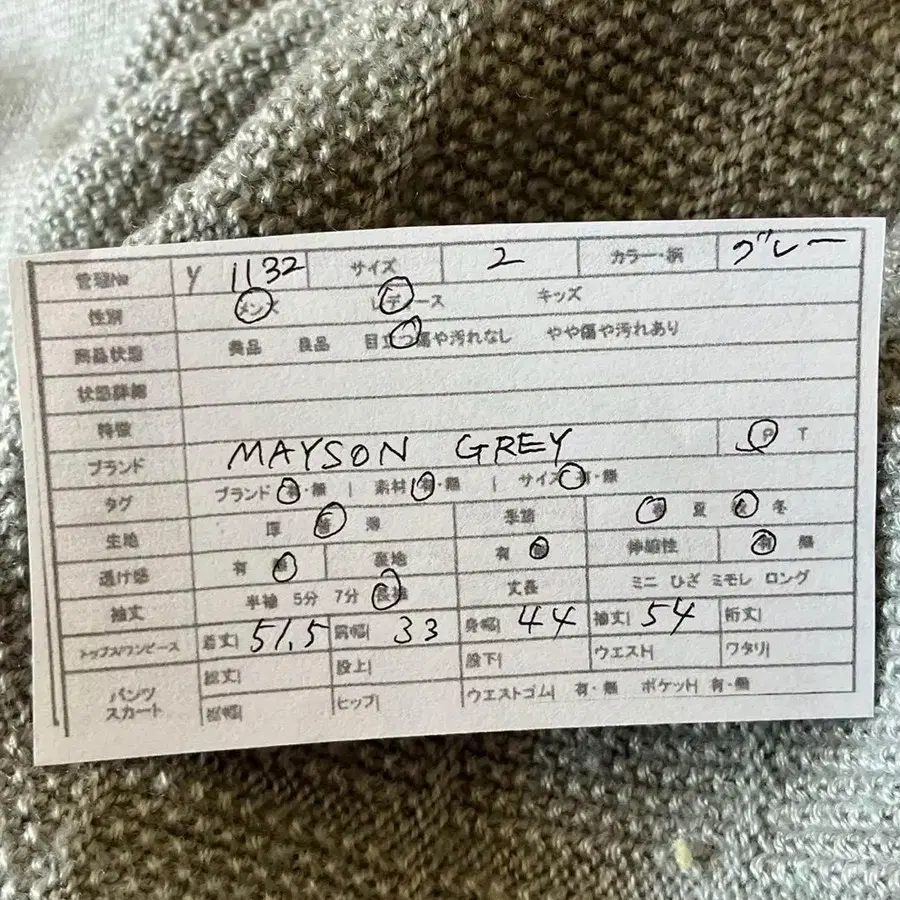 管理No Y 1132 サイズ 2 カラー・柄 グレー
性別 メンズ レディース キッズ
商品状態 美品 良品 目立つ傷や汚れなし やや傷や汚れあり
状態詳細
特徴
ブランド MAYSON GREY P T
タグ ブランド 有・無 | 素材 有・無 | サイズ 有・無
生地 厚 普 薄 季節 春 夏 秋 冬
透け感 有 無 裏地 有 無 伸縮性 有 無
袖丈 半袖 5分 7分 長袖 丈長 ミニ ひざ ミモレ ロング
トップス/ワンピース 着丈| 51.5 肩幅| 33 身幅| 44 袖丈| 54 裄丈|
パンツ スカート 総丈| 股上| 股下| ウエスト| ワタリ|
裾幅| ヒップ| ウエストゴム| 有・無 ポケット| 有・無